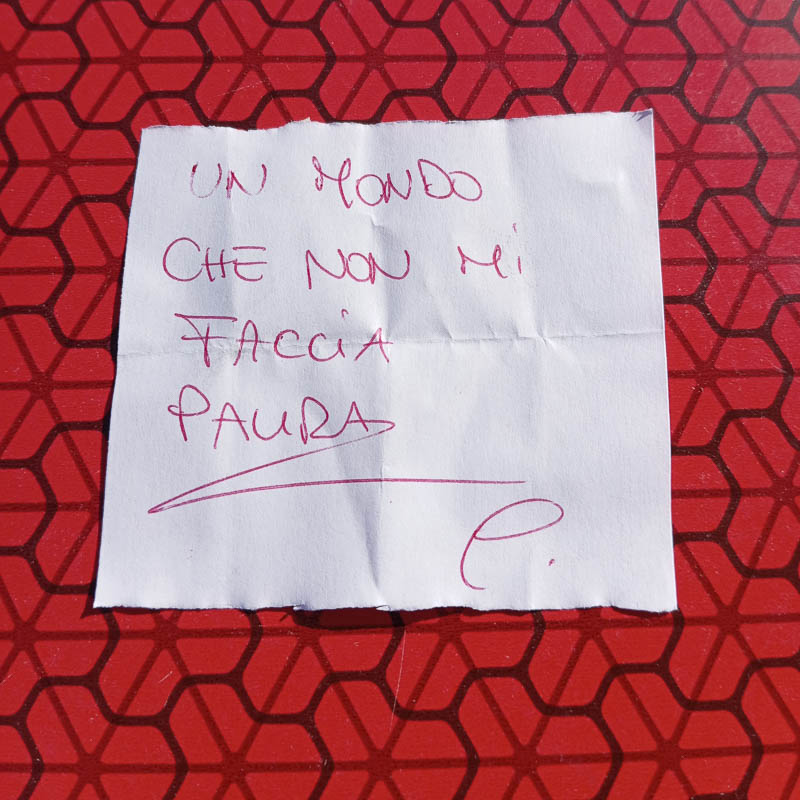 UN MONDO
CHE NON Mi
FACCiA
PAURA
C.